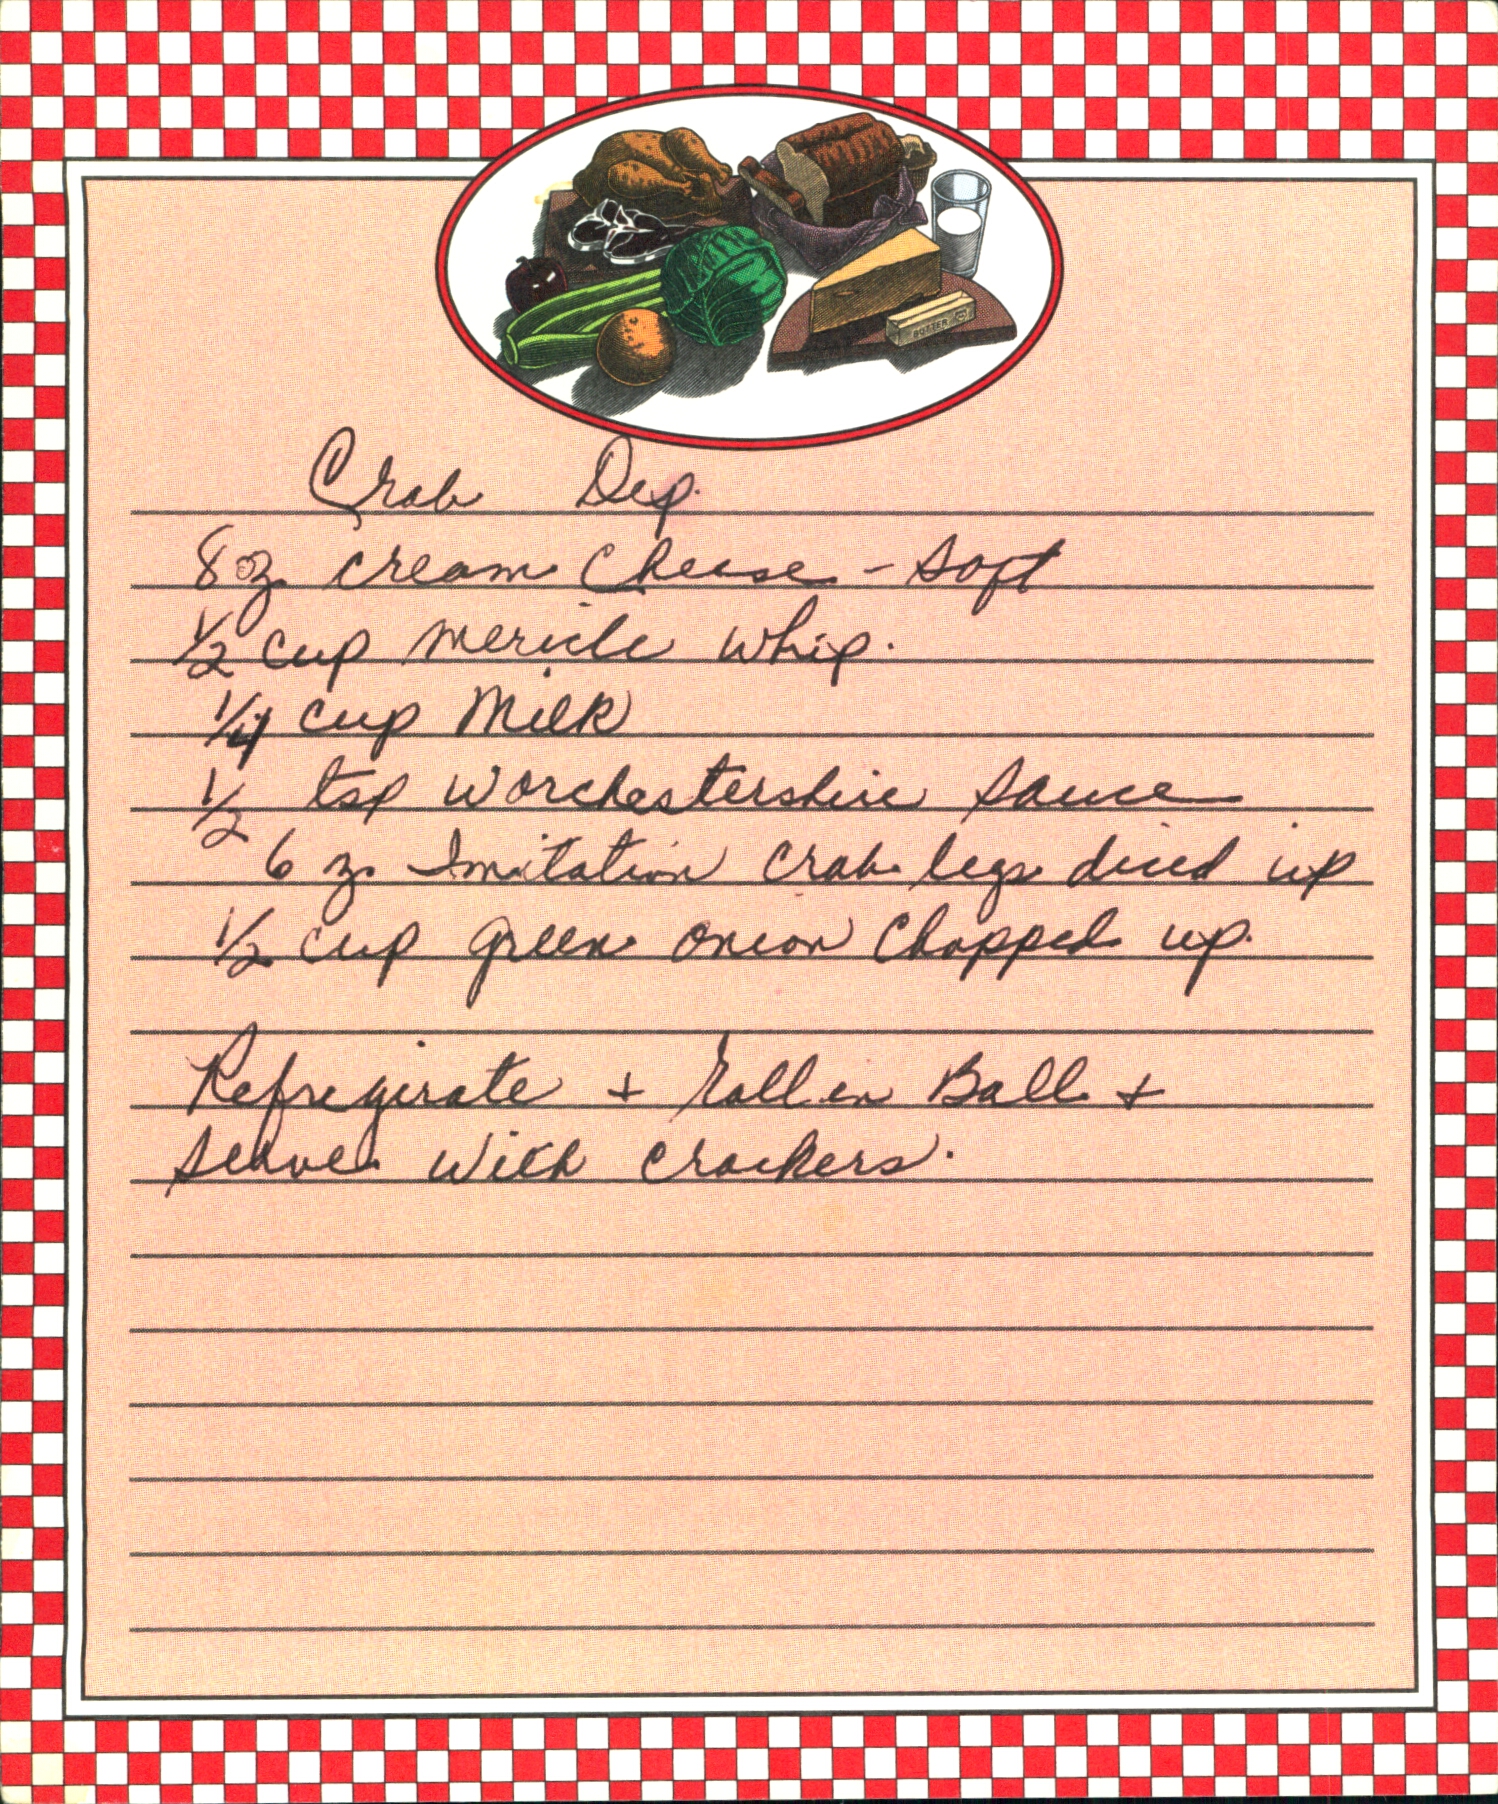 BUTTER
Crab Dip.
8 oz cream Cheese - Soft
1/2 cup mericle whip.
1/4 cup Milk
1/2 tsp Worchestershire Sauce
6 oz Imitation crab legs diced up
1/2 cup green onion Chopped up.
Refregirate + Roll in Ball +
Serve with crackers.